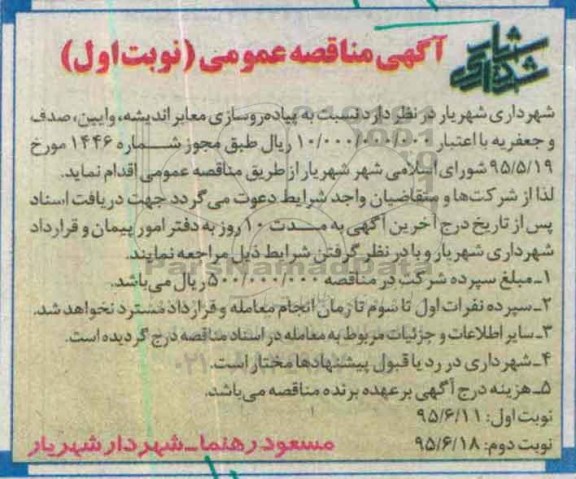 شهرداری شهریار
آگهی مناقصه عمومی (نوبت اول)
شهرداری شهریار در نظر دارد نسبت به پیاده‌روسازی معابر اندیشه، وایین، صدف
و جعفریه با اعتبار ۱۰/۰۰۰/۰۰۰/۰۰۰ ریال طبق مجوز شماره ۱۴۴۶ مورخ
۹۵/۵/۱۹ شورای اسلامی شهر شهریار از طریق مناقصه عمومی اقدام نماید.
لذا از شرکت‌ها و متقاضیان واجد شرایط دعوت می‌گردد جهت دریافت اسناد
پس از تاریخ درج آخرین آگهی به مدت ۱۰ روز به دفتر امور پیمان و قرارداد
شهرداری شهریار و با در نظر گرفتن شرایط ذیل مراجعه نمایند.
۱ـ مبلغ سپرده شرکت در مناقصه ۵۰۰/۰۰۰/۰۰۰ ریال می‌باشد.
۲ـ سپرده نفرات اول تا سوم تا زمان انجام معامله و قرارداد مسترد نخواهد شد.
۳ـ سایر اطلاعات و جزئیات مربوط به معامله در اسناد مناقصه درج گردیده است.
۴ـ شهرداری در رد یا قبول پیشنهادها مختار است.
۵ـ هزینه درج آگهی بر عهده برنده مناقصه می‌باشد.
نوبت اول: ۹۵/۶/۱۱
نوبت دوم: ۹۵/۶/۱۸
مسعود رهنما ـ شهردار شهریار
ParsNamadData